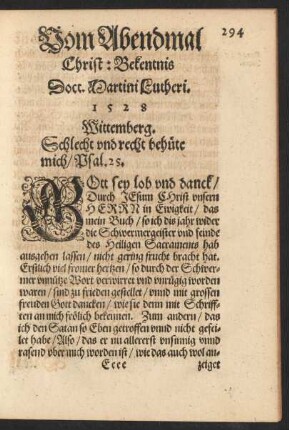 294
Vom Abendmal
Christ: Bekentnis
Doct. Martini Lutheri.
1528
Wittemberg.
Schlecht vnd recht behüte
mich / Psal. 25.
GOtt sey lob vnd danck /
Durch JEsum Christ vnsern
HERRN in Ewigkeit / das
mein Buch / so ich dis jahr wider
die Schwermergeister vnd feinde
des Heiligen Sacraments hab
ausgehen lassen / nicht gering frucht bracht hat.
Erstlich viel fromer hertzen / so durch der Schwer-
mer vnnütze Wort verwirret vnd vnrügig worden
waren / sind zu frieden gestellet / vnnd mit grossen
freuden Gott dancken / wie sie denn mit Schriff-
ten an mich frölich bekennen. Zum andern / das
ich den Satan so Eben getroffen vnnd nicht gefei-
let habe / Also / das er nu allererst vnsinnig vnnd
rasend vber mich worden ist / wie das auch wol an-
Ecce zeiget